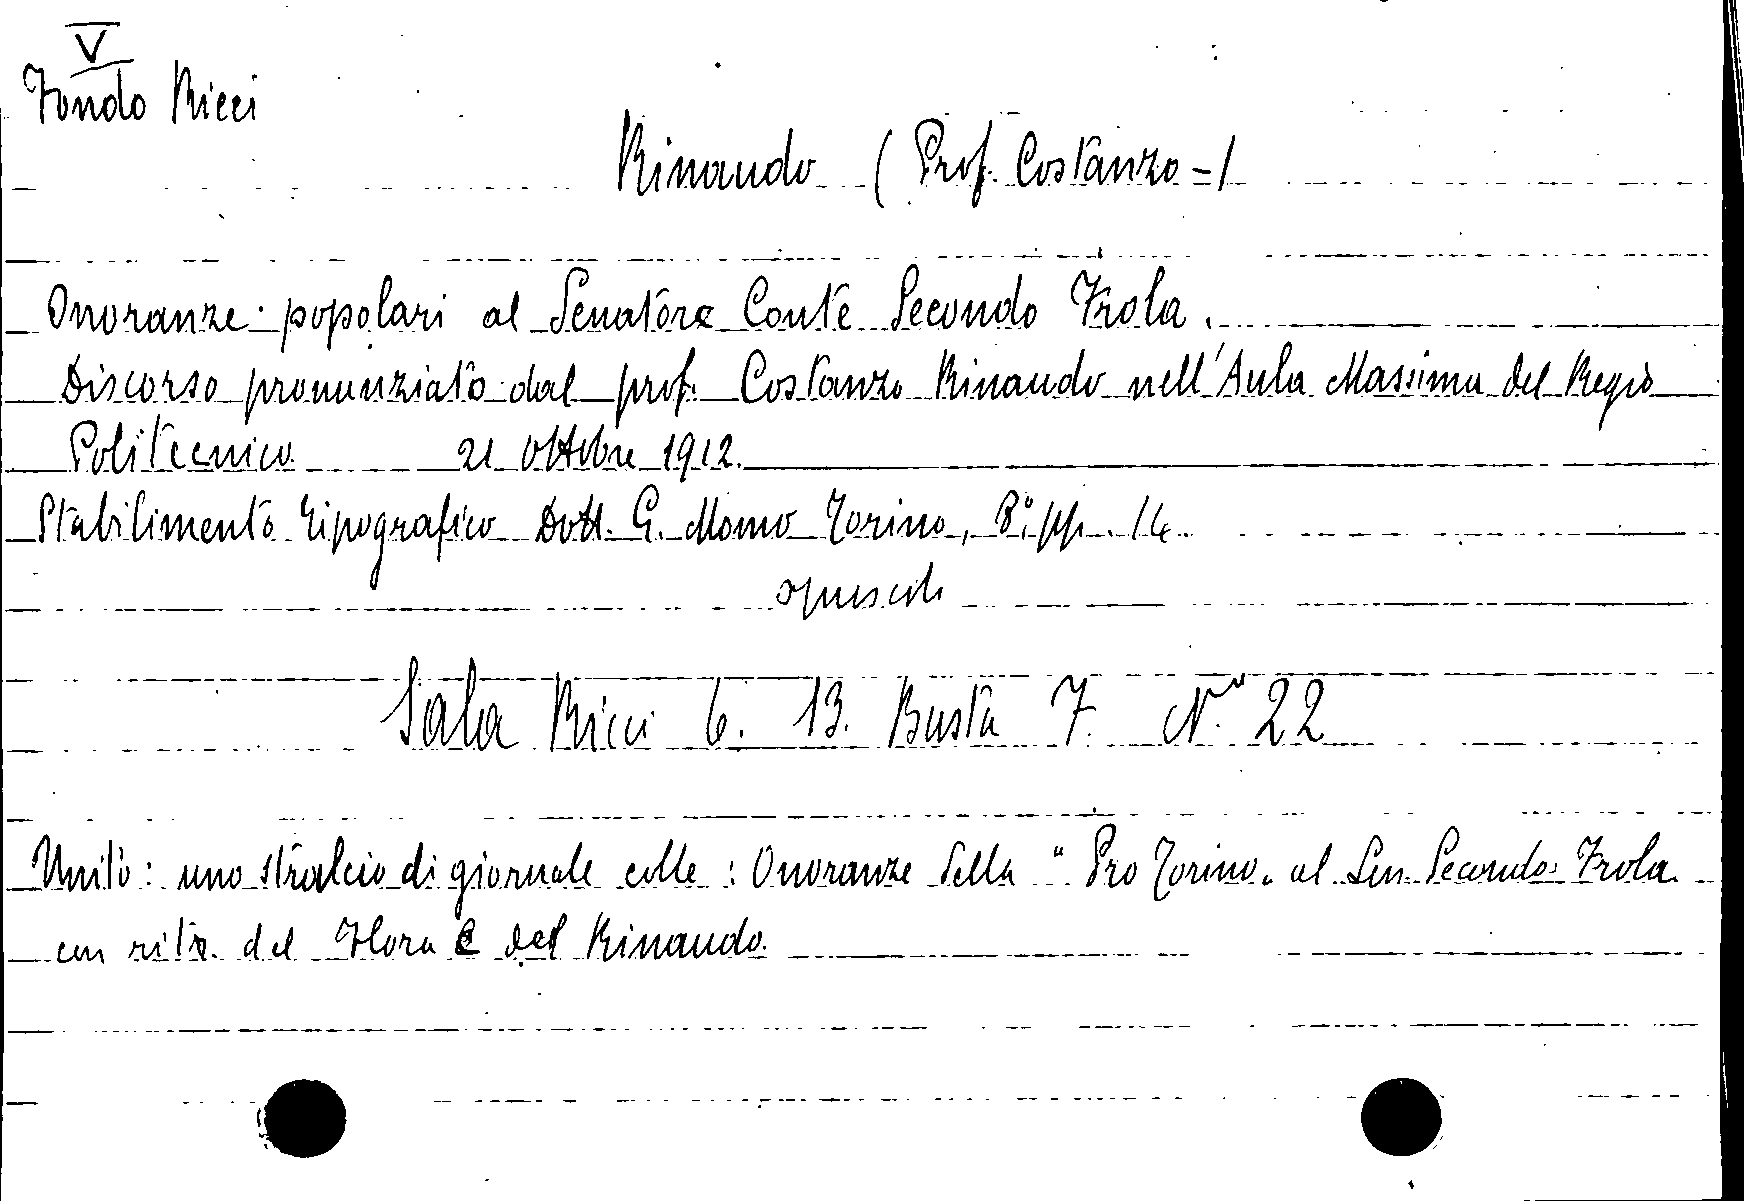 V
Fondo Ricci
Rinaudo (Prof. Costanzo =/
Onoranze popolari al Senatore Conte Secondo Frola.
Discorso pronunziato dal prof. Costanzo Rinaudo nell'Aula Massima del Regio
Politecnico 21 Ottobre 1912.
Stabilimento tipografico Dott. G. Momo Torino, 8° pp. 14
opuscoli
Sala Ricci 6. 13. Busta 7. N. 22
Unito: uno stralcio di giornale colle: Onoranze della "Pro Torino" al Sen. Secondo Frola
con del e del Rinaudo.